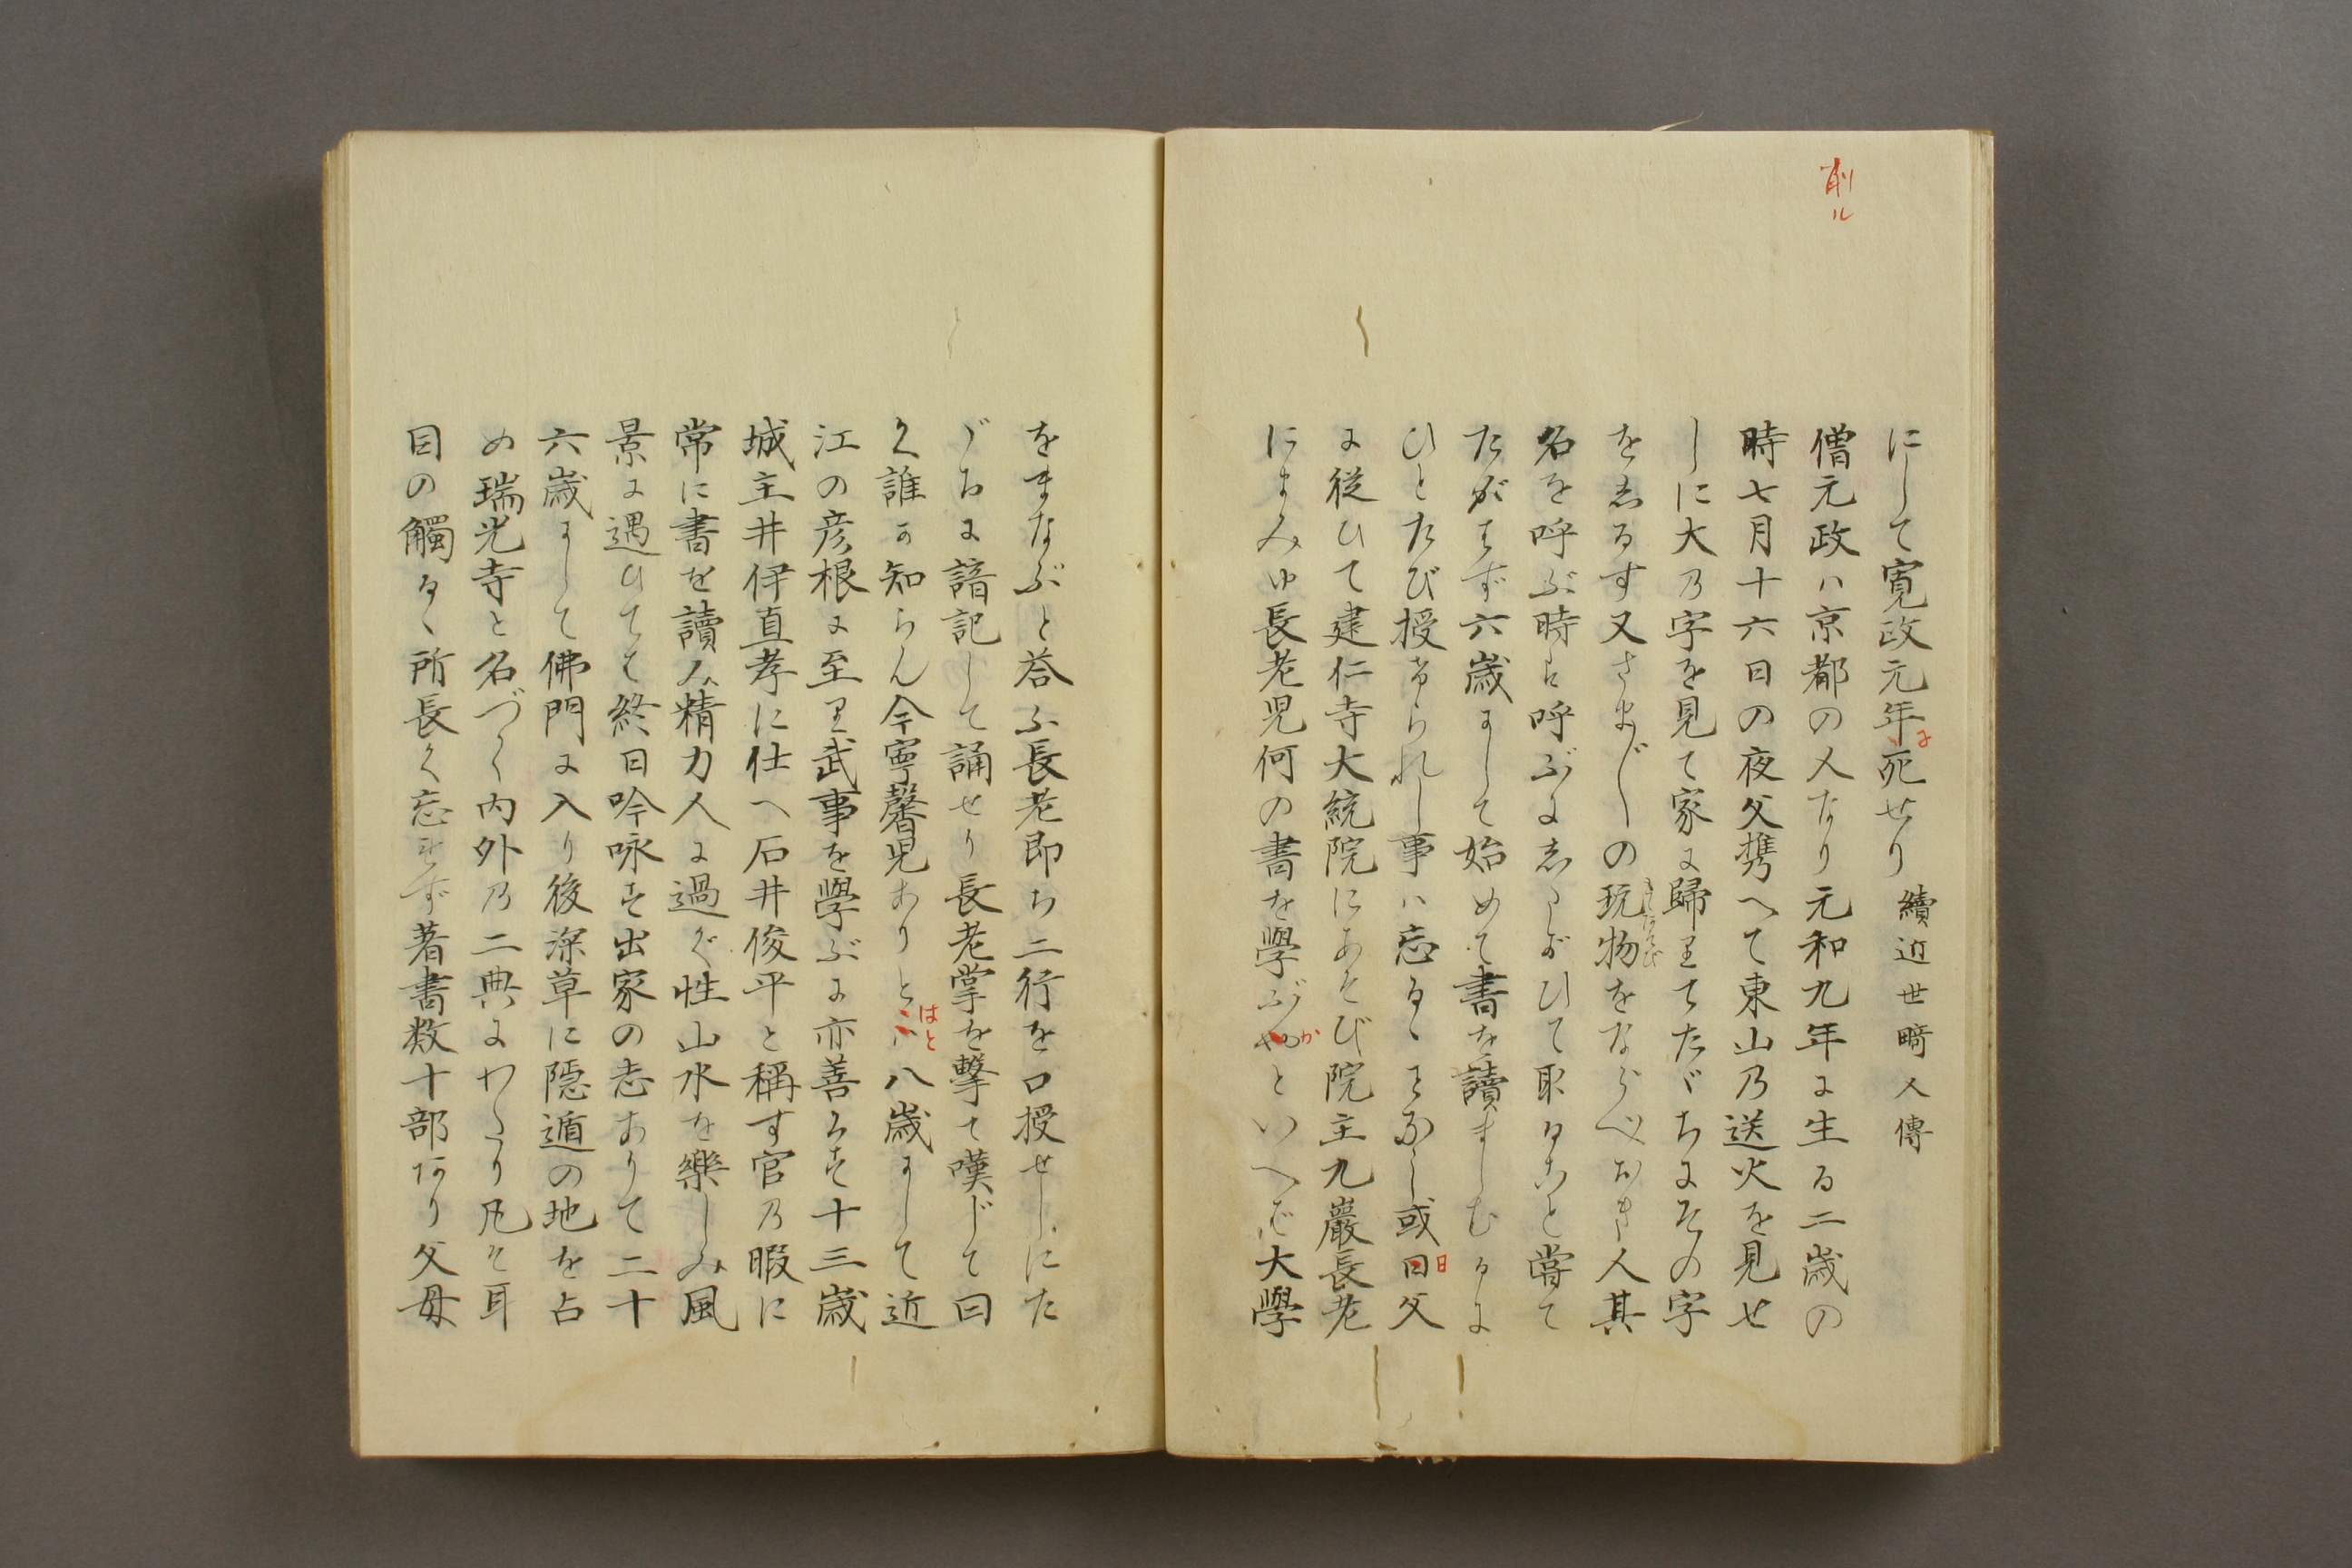 削ル
にして寛政元年に死せり 續近世畸人傳
僧元政ハ京都の人なり元和九年に生る二歳の
時七月十六日の夜父携へて東山乃送火を見せ
しに大乃字を見て家に歸りてたゞちにその字
をゑるす又さま〴〵の玩物をならべおき人其
名を呼ぶ時は呼ぶにゑたがひて取ること嘗て
たがはず六歳にして始めて書を讀ましむるに
ひとたび授けられし事ハ忘るゝことなし或日父
に従ひて建仁寺大統院にあそび院主九巖長老
にまみゆ長老児何の書を學ぶかといへば大學
をまなぶと答ふ長老即ち二行を口授せしにた
ゞちに諳記して誦せり長老掌を撃て嘆じて曰
く誰か知らん今寧馨児ありとはと八歳にして近
江の彦根に至り武事を學ぶに亦善くす十三歳
城主井伊直孝に仕へ石井俊平と稱す官乃暇に
常に書を讀み精力人に過ぐ性山水を樂しみ風
景に遇ひてて終日吟咏す出家の志ありて二十
六歳にして佛門に入り後深草に隠遁の地を占
め瑞光寺と名づく内外乃二典にわたり凡そ耳
目の觸るゝ所長く忘れず著書数十部あり父母